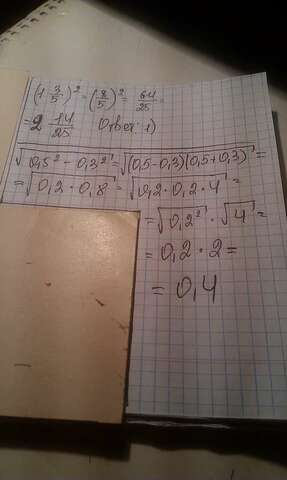 (1 3/5)² = (8/5)² = 64/25 =
= 2 14/25 Ответ: 1)
√(0,5² - 0,3²) = √((0,5-0,3)(0,5+0,3)) =
= √(0,2 · 0,8) = √(0,2 · 0,2 · 4) =
= √(0,2²) · √4 =
= 0,2 · 2 =
= 0,4